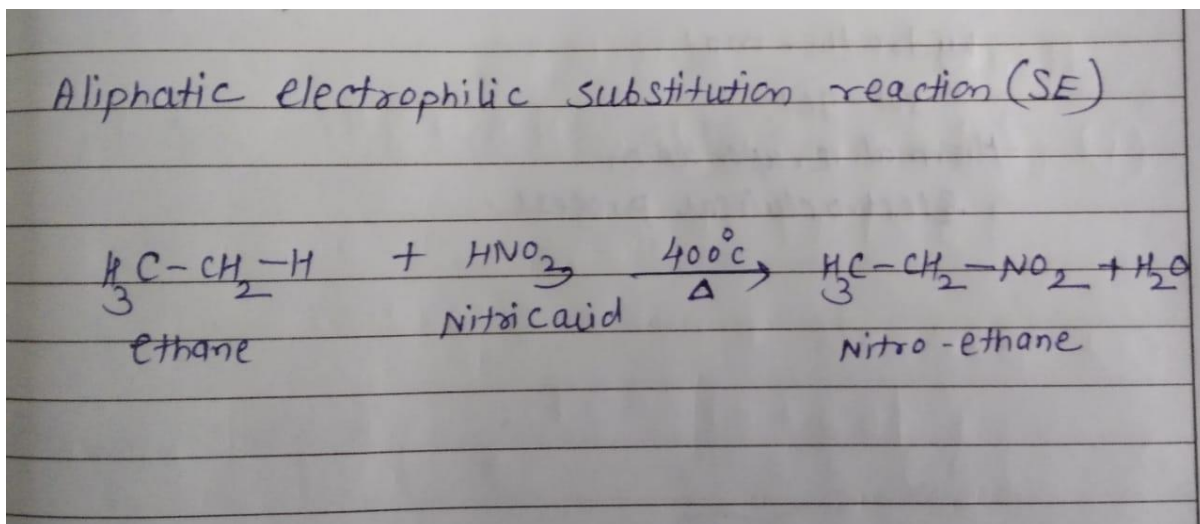 Aliphatic electrophilic substitution reaction (SE)
H₃C-CH₂-H + HNO₃ 400°C Δ → H₃C-CH₂-NO₂ + H₂O
Nitric acid
ethane Nitro-ethane